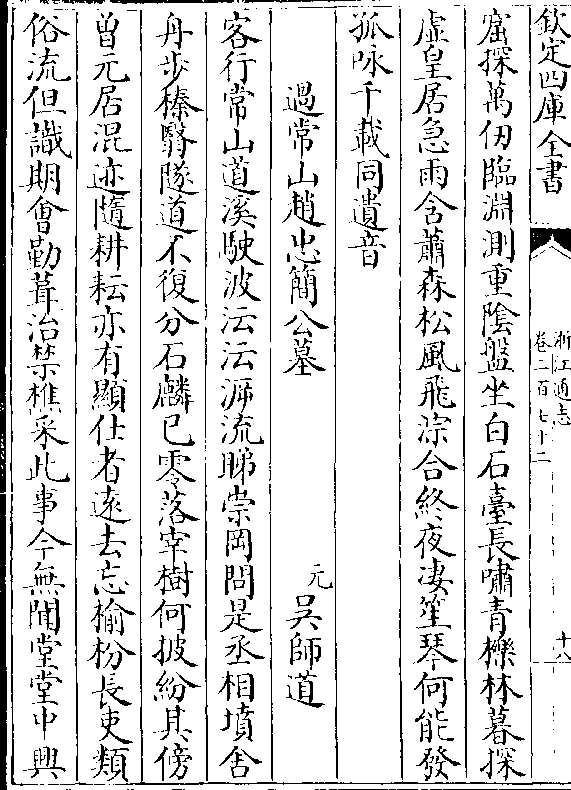 欽定四庫全書
浙江通志
卷二百七十二
十八
窟探萬仞臨淵測重陰盤坐白石臺長嘯青櫟林暮探
虛皇居急雨含蕭森松風飛淙合終夜凄笙琴何能發
孤咏千載同遺音
過常山趙忠簡公墓
元吳師道
客行常山道溪駛波沄沄泝流睇崇岡問是丞相墳舍
舟步榛翳隧道不復分石麟已零落宰樹何披紛其傍
曽元居混迹隨耕耘亦有顯仕者遠去忘榆枌長吏類
俗流但識期會勤葺治禁樵采此事今無聞堂堂中興